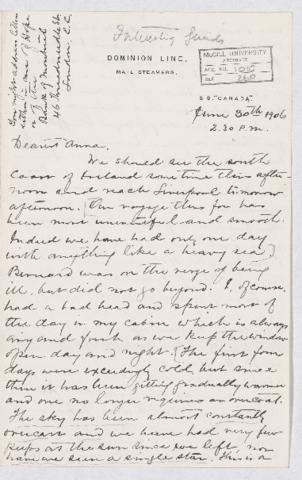 Interesting
DOMINION LINE.
MAIL STEAMERS.
McGILL UNIVERSITY
ARCHIVES
ACC. NO. 1010
REF.
S.S. "CANADA"
June 30th 1906
2.30 P.M.
You might address letters
either in care of Hope
or of the
Bank of Montreal
46 Threadneedle St.
London E.C.
Dearest Anna.
We should see the south
Coast of Ireland some time this after-
noon and reach Liverpool tomorrow
afternoon. Our voyage thus far has
been most uneventful and smooth.
Indeed we have had only one day
with anything like a heavy sea.
Bernard was on the verge of being
ill, but did not go beyond. I, of course,
had a bad head and spent most of
the day in my cabin which is always
airy and fresh as we keep the window
open day and night. The first four
days were exceedingly cold but since
then it has been getting gradually warmer
and one no longer requires an overcoat.
The sky has been almost constantly
overcast and we have had very few
peeps at the sun since we left, nor
have we seen a single star. This is a